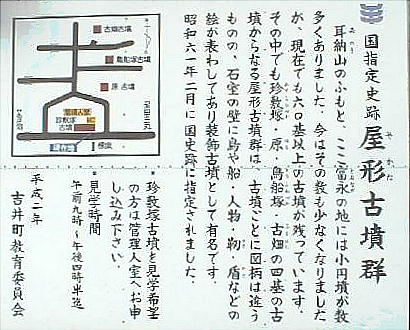 国指定史跡 屋形古墳群
やかた
耳納山のふもと、ここ富永の地には小円墳が数
多くありました。今はその数も少なくなりました
が、現在でも六〇基以上の古墳が残っています。
その中でも珍敷塚・原・鳥船塚・古畑の四基の古
墳からなる屋形古墳群は、古墳ごとに図柄は違う
ものの、石室の壁に鳥や船・人物・靭・盾などの
絵が表わしてあり装飾古墳として有名です。
昭和六一年二月に国史跡に指定されました。
珍敷塚古墳を見学希望
の方は管理人室へお申
し込み下さい。
見学時間
午前九時~午後四時半迄
平成二年
吉井町教育委員会
古畑古墳
鳥船塚古墳
原 古墳
管理人室
珍敷塚
古墳
現在地